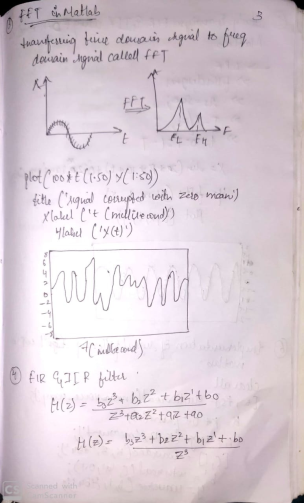 FFT in Matlab
5
transferring time domain signal to freq
domain signal called FFT
X
FFT
t
F
plot (1000*t(1:50) X(1:50))
title ('signal corrupted with zero main')
Xlabel ('t (millisecond)')
Ylabel ('X(t)')
8
6
4
2
0
-2
-4
-6
(millisecond)
④ FIR & IIR filter
H(z) = b3z³ + b2z² + b1z¹ + b0
z³ + a2z² + a1z + a0
H(z) = b3z³ + b2z² + b1z¹ + b0
z³
CS